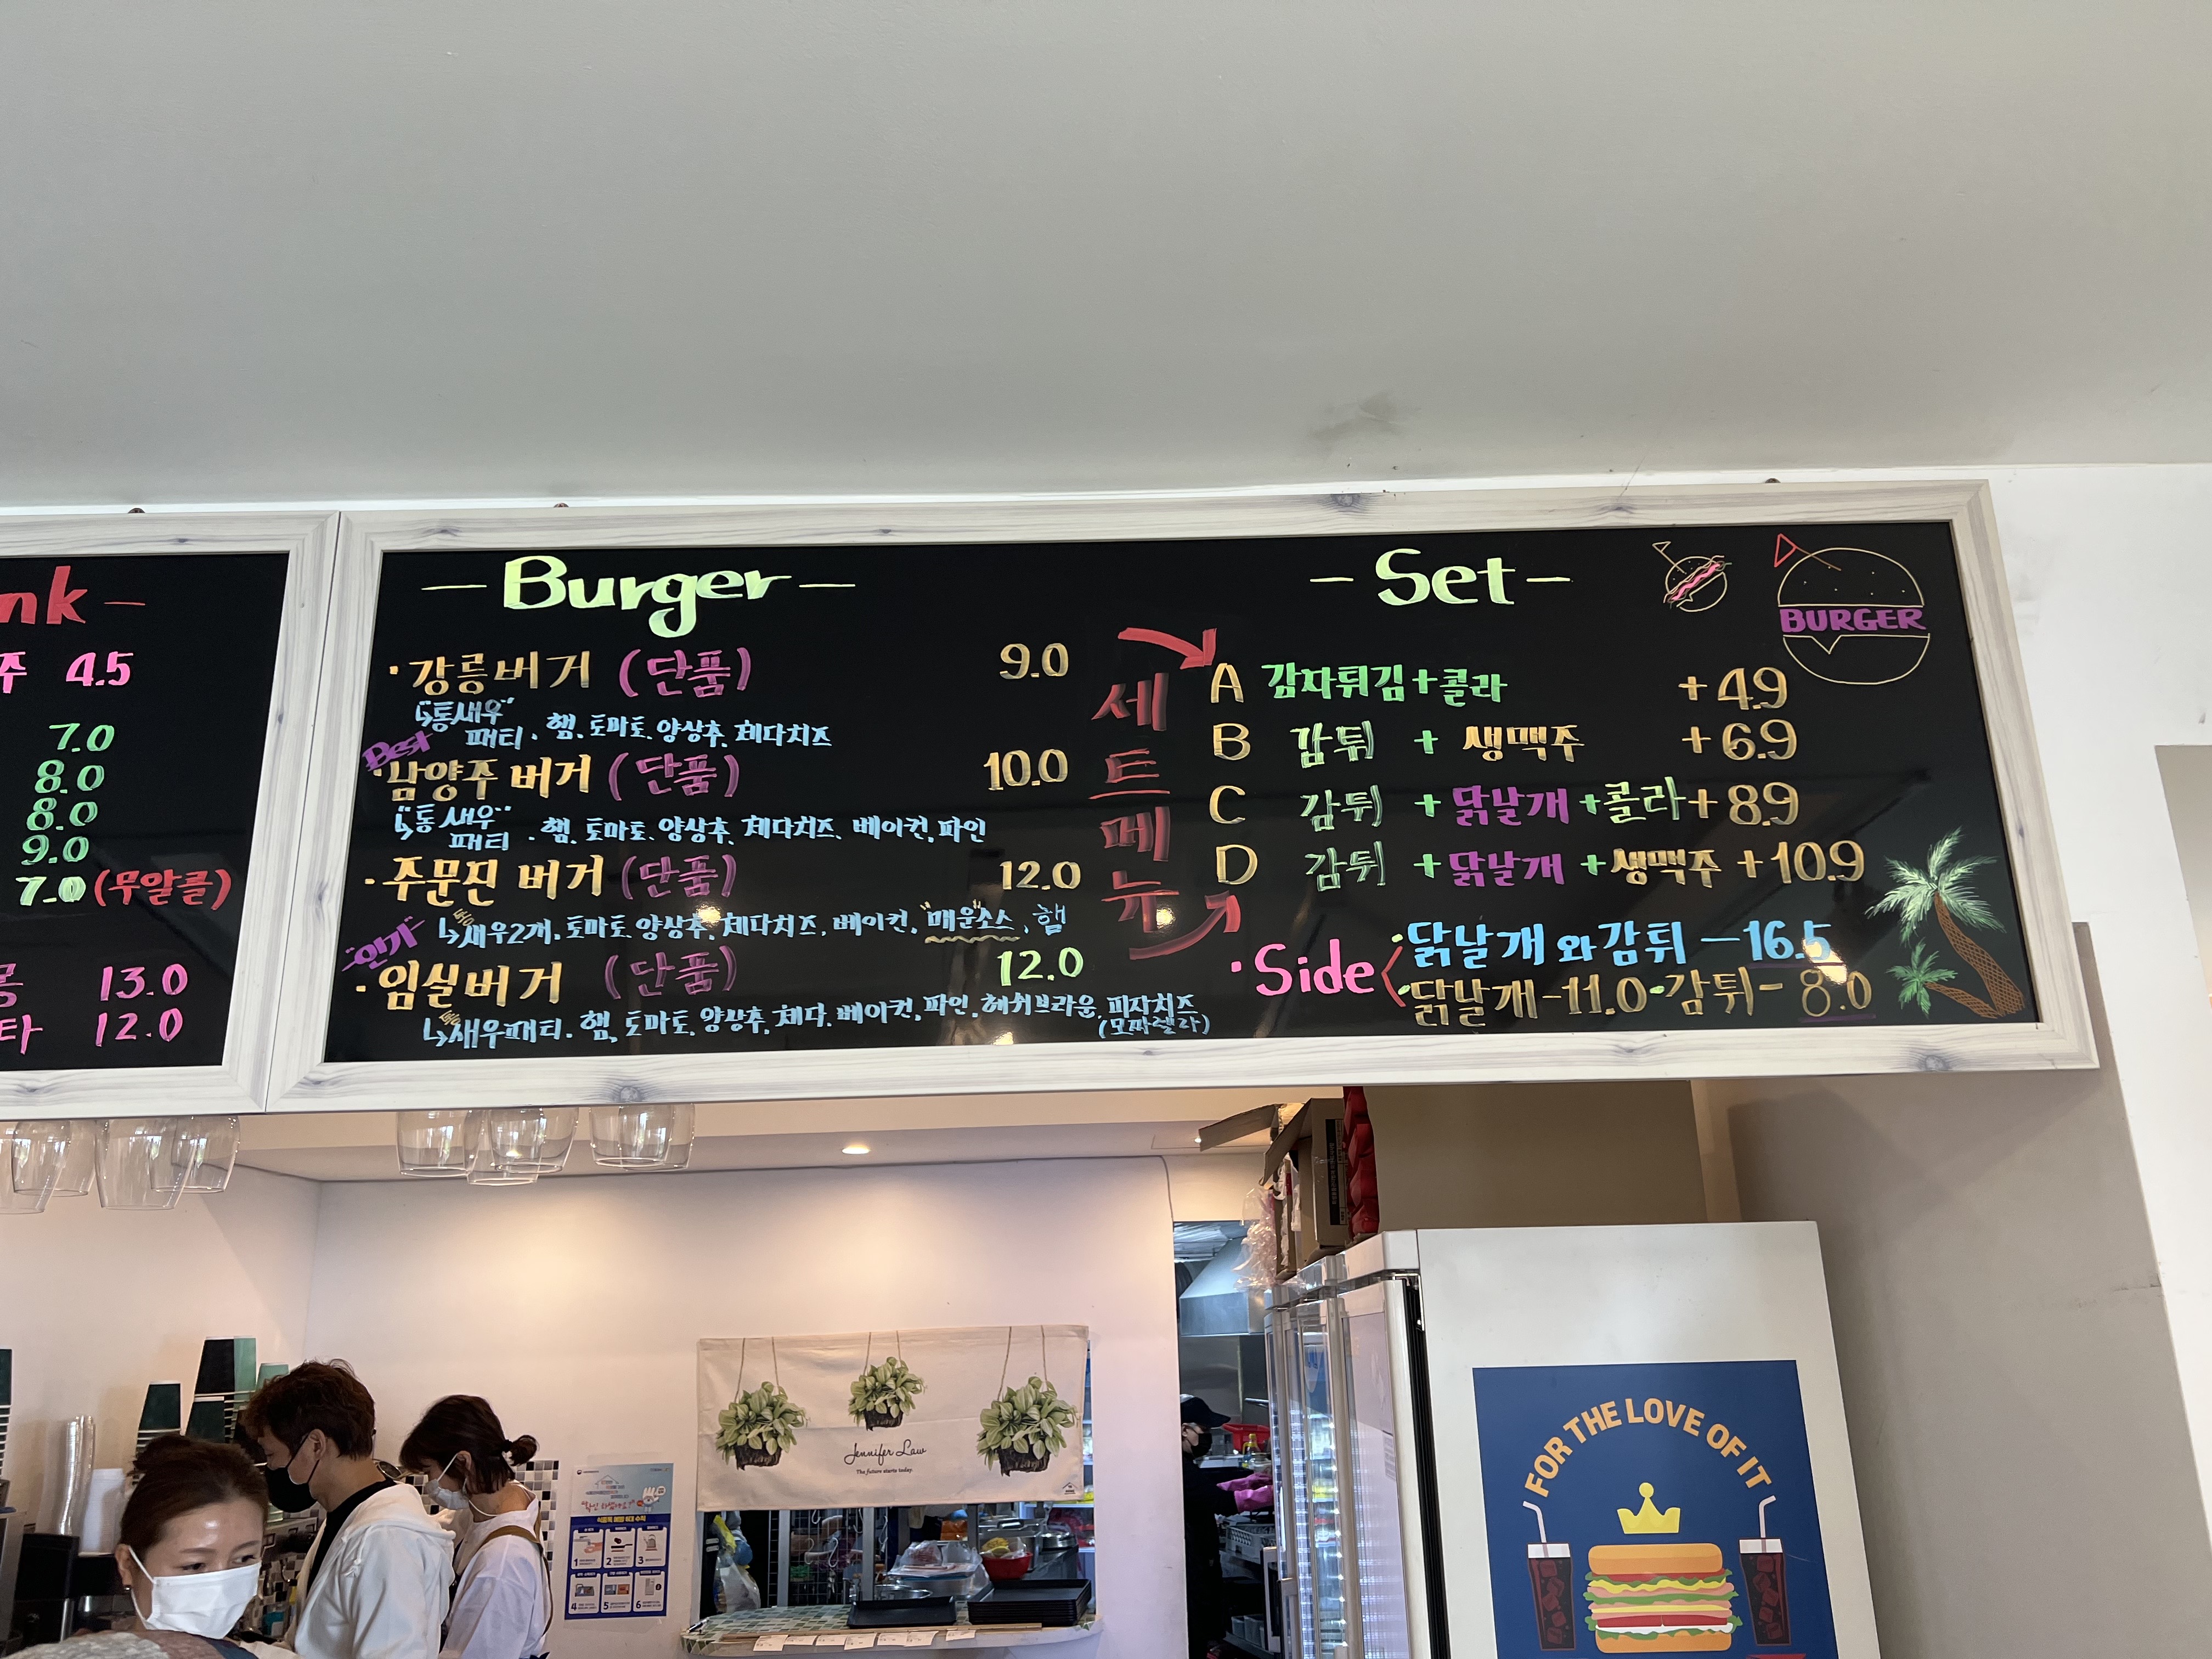 nk -
주 4.5
7.0
8.0
8.0
9.0
7.0 (무알콜)
13.0
타 12.0
- Burger -
· 강릉버거 (단품) 9.0
↳"통새우"
패티 . 햄. 토마토. 양상추. 체다치즈
Best
· 남양주 버거 (단품) 10.0
↳"통새우"
패티 . 햄. 토마토. 양상추. 체다치즈. 베이컨. 파인
· 주문진 버거 (단품) 12.0
↳통새우2개. 토마토. 양상추. 체다치즈. 베이컨. "매운"소스. 햄
"인기"
· 임실버거 (단품) 12.0
↳통새우패티. 햄. 토마토. 양상추. 체다. 베이컨. 파인. 해쉬브라운. 피자치즈
(모짜렐라)
세트메뉴
- Set -
BURGER
A 감자튀김+콜라 +4.9
B 감튀 + 생맥주 +6.9
C 감튀 + 닭날개 +콜라+ 8.9
D 감튀 +닭날개 +생맥주 +10.9
· Side < · 닭날개 와 감튀 - 16.5
· 닭날개-11.0 · 감튀- 8.0
Jennifer Law
The future starts today.
1 2 3
4 5 6
FOR THE LOVE OF IT